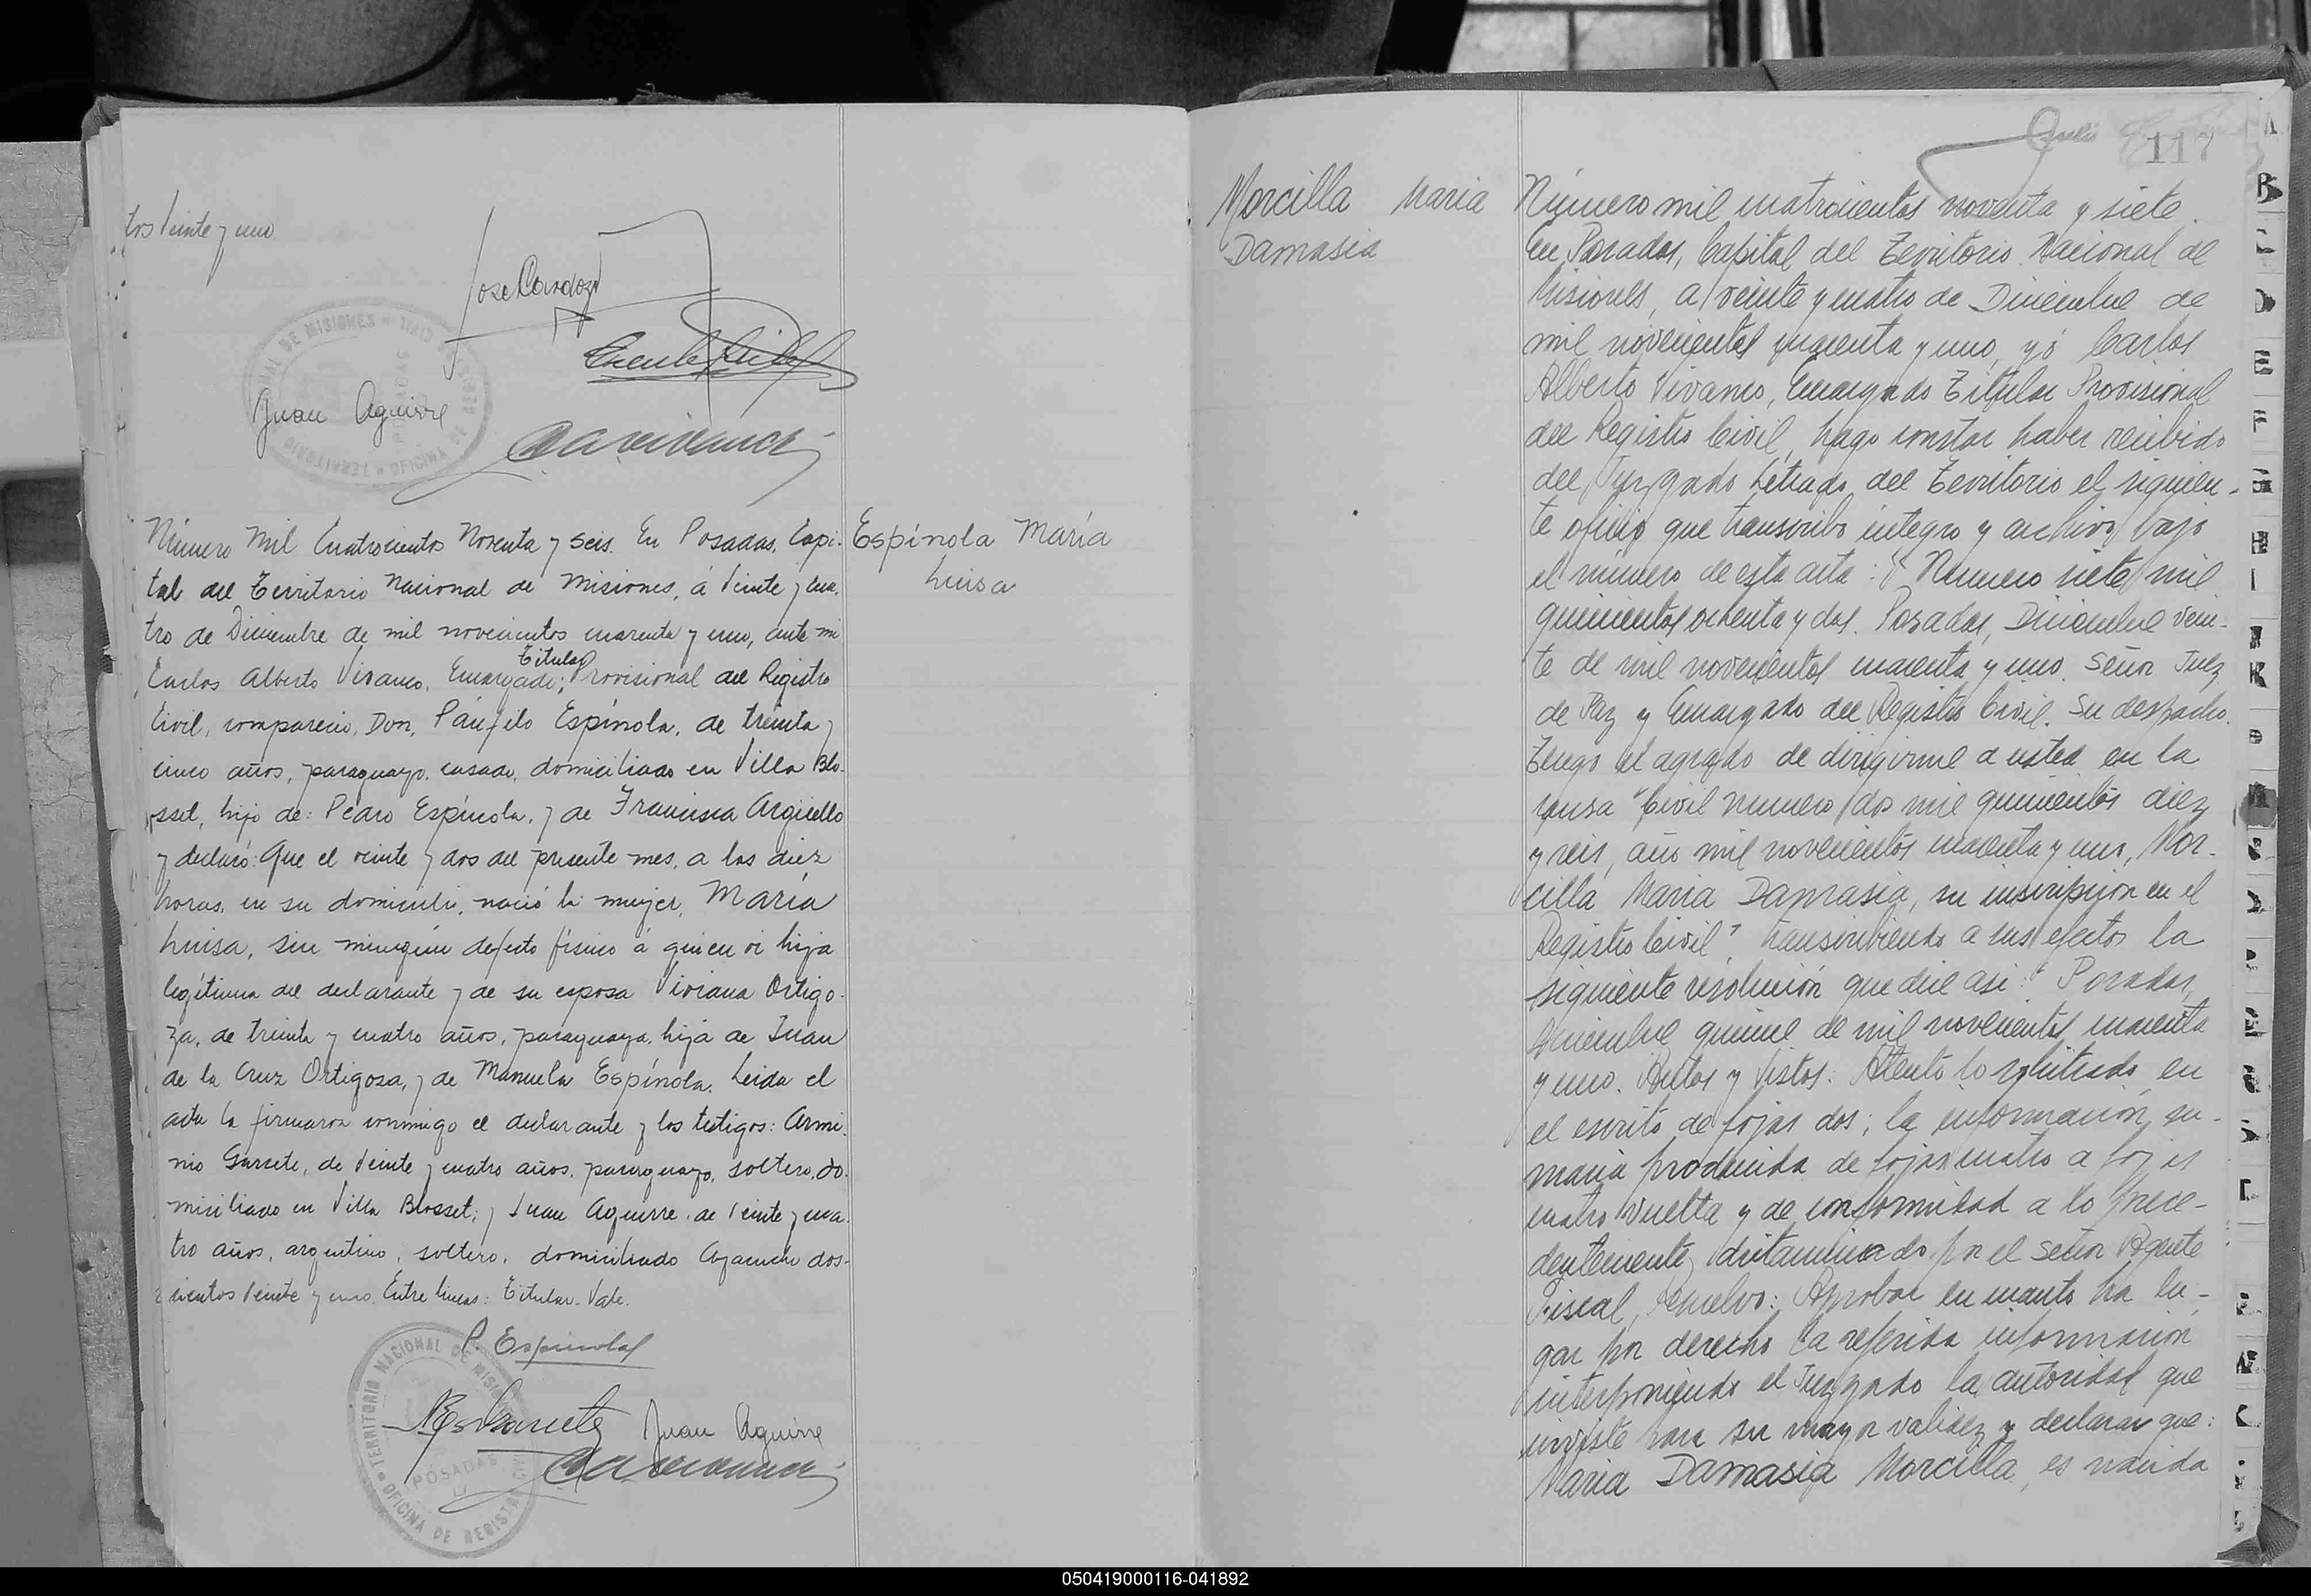 tos veinte y uno.
Jose Cardozo
Juan Aguirre
CAVivanco
Número Mil Cuatrocientos Noventa y seis. En Posadas, Capi-
tal del Territorio Nacional de Misiones, á veinte y cua-
tro de Diciembre de mil novecientos cuarenta y uno, ante mi
Titular
Carlos Alberto Vivanco, Encargado; Provisional del Registro
Civil, compareció, Don, Pánfilo Espínola, de treinta y
cinco años, paraguayo, casado, domiciliado en Villa Blo-
sset, hijo de: Pedro Espínola, y de Francisca Argüello
y declaró: Que el veinte y dos del presente mes, a las diez
horas, en su domicilio, nació la mujer, María
Luisa, sin ningún defecto físico á quien vi hija
legítima del declarante y de su esposa Viviana Ortigo-
za, de treinta y cuatro años, paraguaya, hija de Juan
de la Cruz Ortigosa, y de Manuela Espínola. Leida el
acta la firmaron conmigo el declarante y los testigos: Armi-
nio Garcete, de veinte y cuatro años, paraguayo, soltero, do-
miciliado en Villa Blosset; y Juan Aguirre, de veinte y cua-
tro años, argentino, soltero, domiciliado Ayacucho dos-
cientos veinte y uno. Entre lineas: Titular. Vale.
P. Espinola
Garcete Juan Aguirre
CAVivanco
TERRITORIO NACIONAL DE MISIONES
POSADAS
OFICINA DE REGISTRO CIVIL
Espínola María
Luisa
117
Morcilla Maria
Damasia
Número mil cuatrocientos noventa y siete.
En Posadas, Capital del Territorio Nacional de
Misiones, a veinte y cuatro de Diciembre de
mil novecientos cuarenta y uno, yó Carlos
Alberto Vivanco, Encargado Titular Provisional
del Registro Civil, hago constar haber recibido
del Juzgado Letrado del Territorio el siguien-
te oficio que transcribo integro y archivo bajo
el número de esta acta: "Numero siete mil
quinientos ochenta y dos. Posadas, Diciembre vein-
te de mil novecientos cuarenta y uno. Señor Juez
de Paz y Encargado del Registro Civil. Su despacho.
Tengo el agrado de dirigirme a usted en la
causa "Civil numero dos mil quinientos diez
y seis, año mil novecientos cuarenta y uno, Mor-
cilla Maria Damasia, su inscripcion en el
Registro Civil", transcribiendo a sus efectos la
siguiente resolución que dice asi: "Posadas,
Diciembre quince de mil novecientos cuarenta
y uno. Autos y Vistos: Atento lo solicitado en
el escrito de fojas dos; la información su-
maria producida de fojas cuatro a fojas
cuatro vuelta y de conformidad a lo prece-
dentemente dictaminado por el señor Agente
Fiscal, Resuelvo: Aprobar en cuanto ha lu-
gar por derecho la referida información
interponiendo el Juzgado la autoridad que
inviste para su mayor validez y declarar que:
Maria Damasia Morcilla, es nacida
050419000116-041892